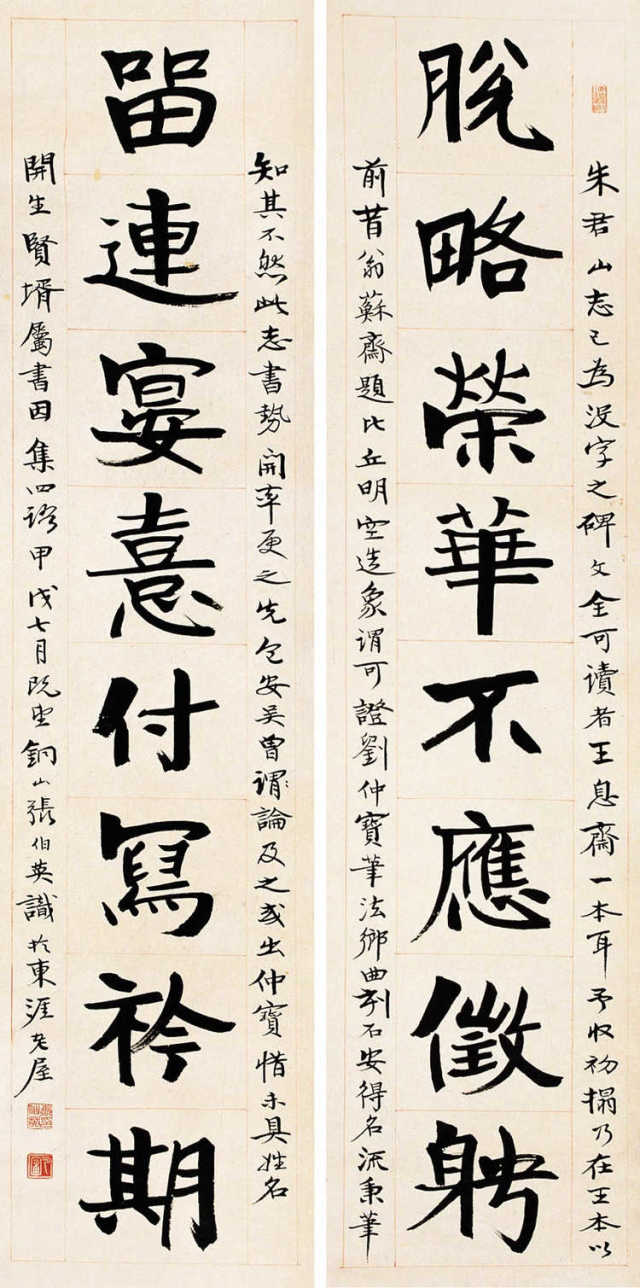 朱君山志已為没字之碑文全可讀者王息齋一本耳予收初搨乃在王本以
脫略榮華不應徵聘
前昔翁蘇齋題比丘明空造象謂可證劉仲寶筆法鄉曲刻石安得名流秉筆
知其不然此志書勢開率更之先包安吴曾謂論及之或出仲寶惜未具姓名
㽞連宴憙付寫衿期
開生賢壻屬書因集四語甲戌七月既望銅山張伯英識於東涯老屋